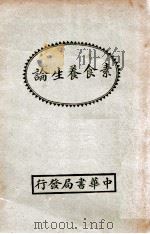 論生養食素
行發局書華中
mtoou.info